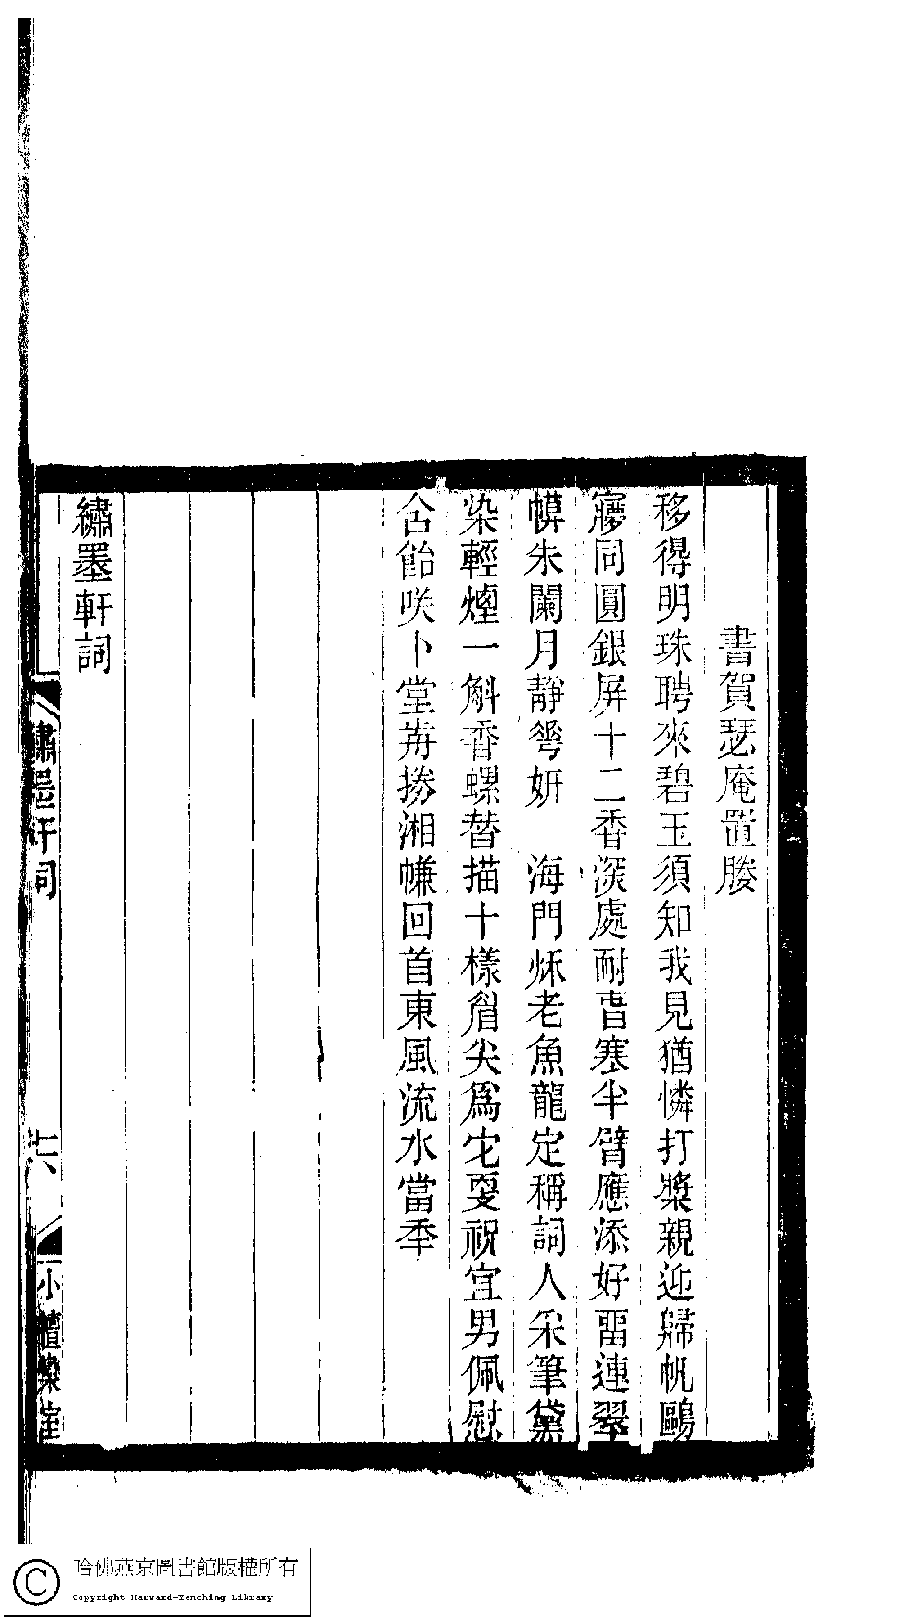 書賀瑟庵置媵
移得明珠聘來碧玉須知我見猶憐打槳親迎歸帆鷗
寱同圓銀屏十二香深處耐曹寒半臂應添好畱連翠
幙朱闌月靜琴妍　海門秌老魚龍定稱詞人采筆黛
染輕煙一斛香螺替描十樣眉尖爲它更祝宜男佩慰
含飴咲卜堂歬捲湘㡘回首東風流水當秊
繡墨軒詞
繡墨軒詞
六
小檀欒室
哈佛燕京圖書館版權所有
Copyright Harvard-Yenching Library